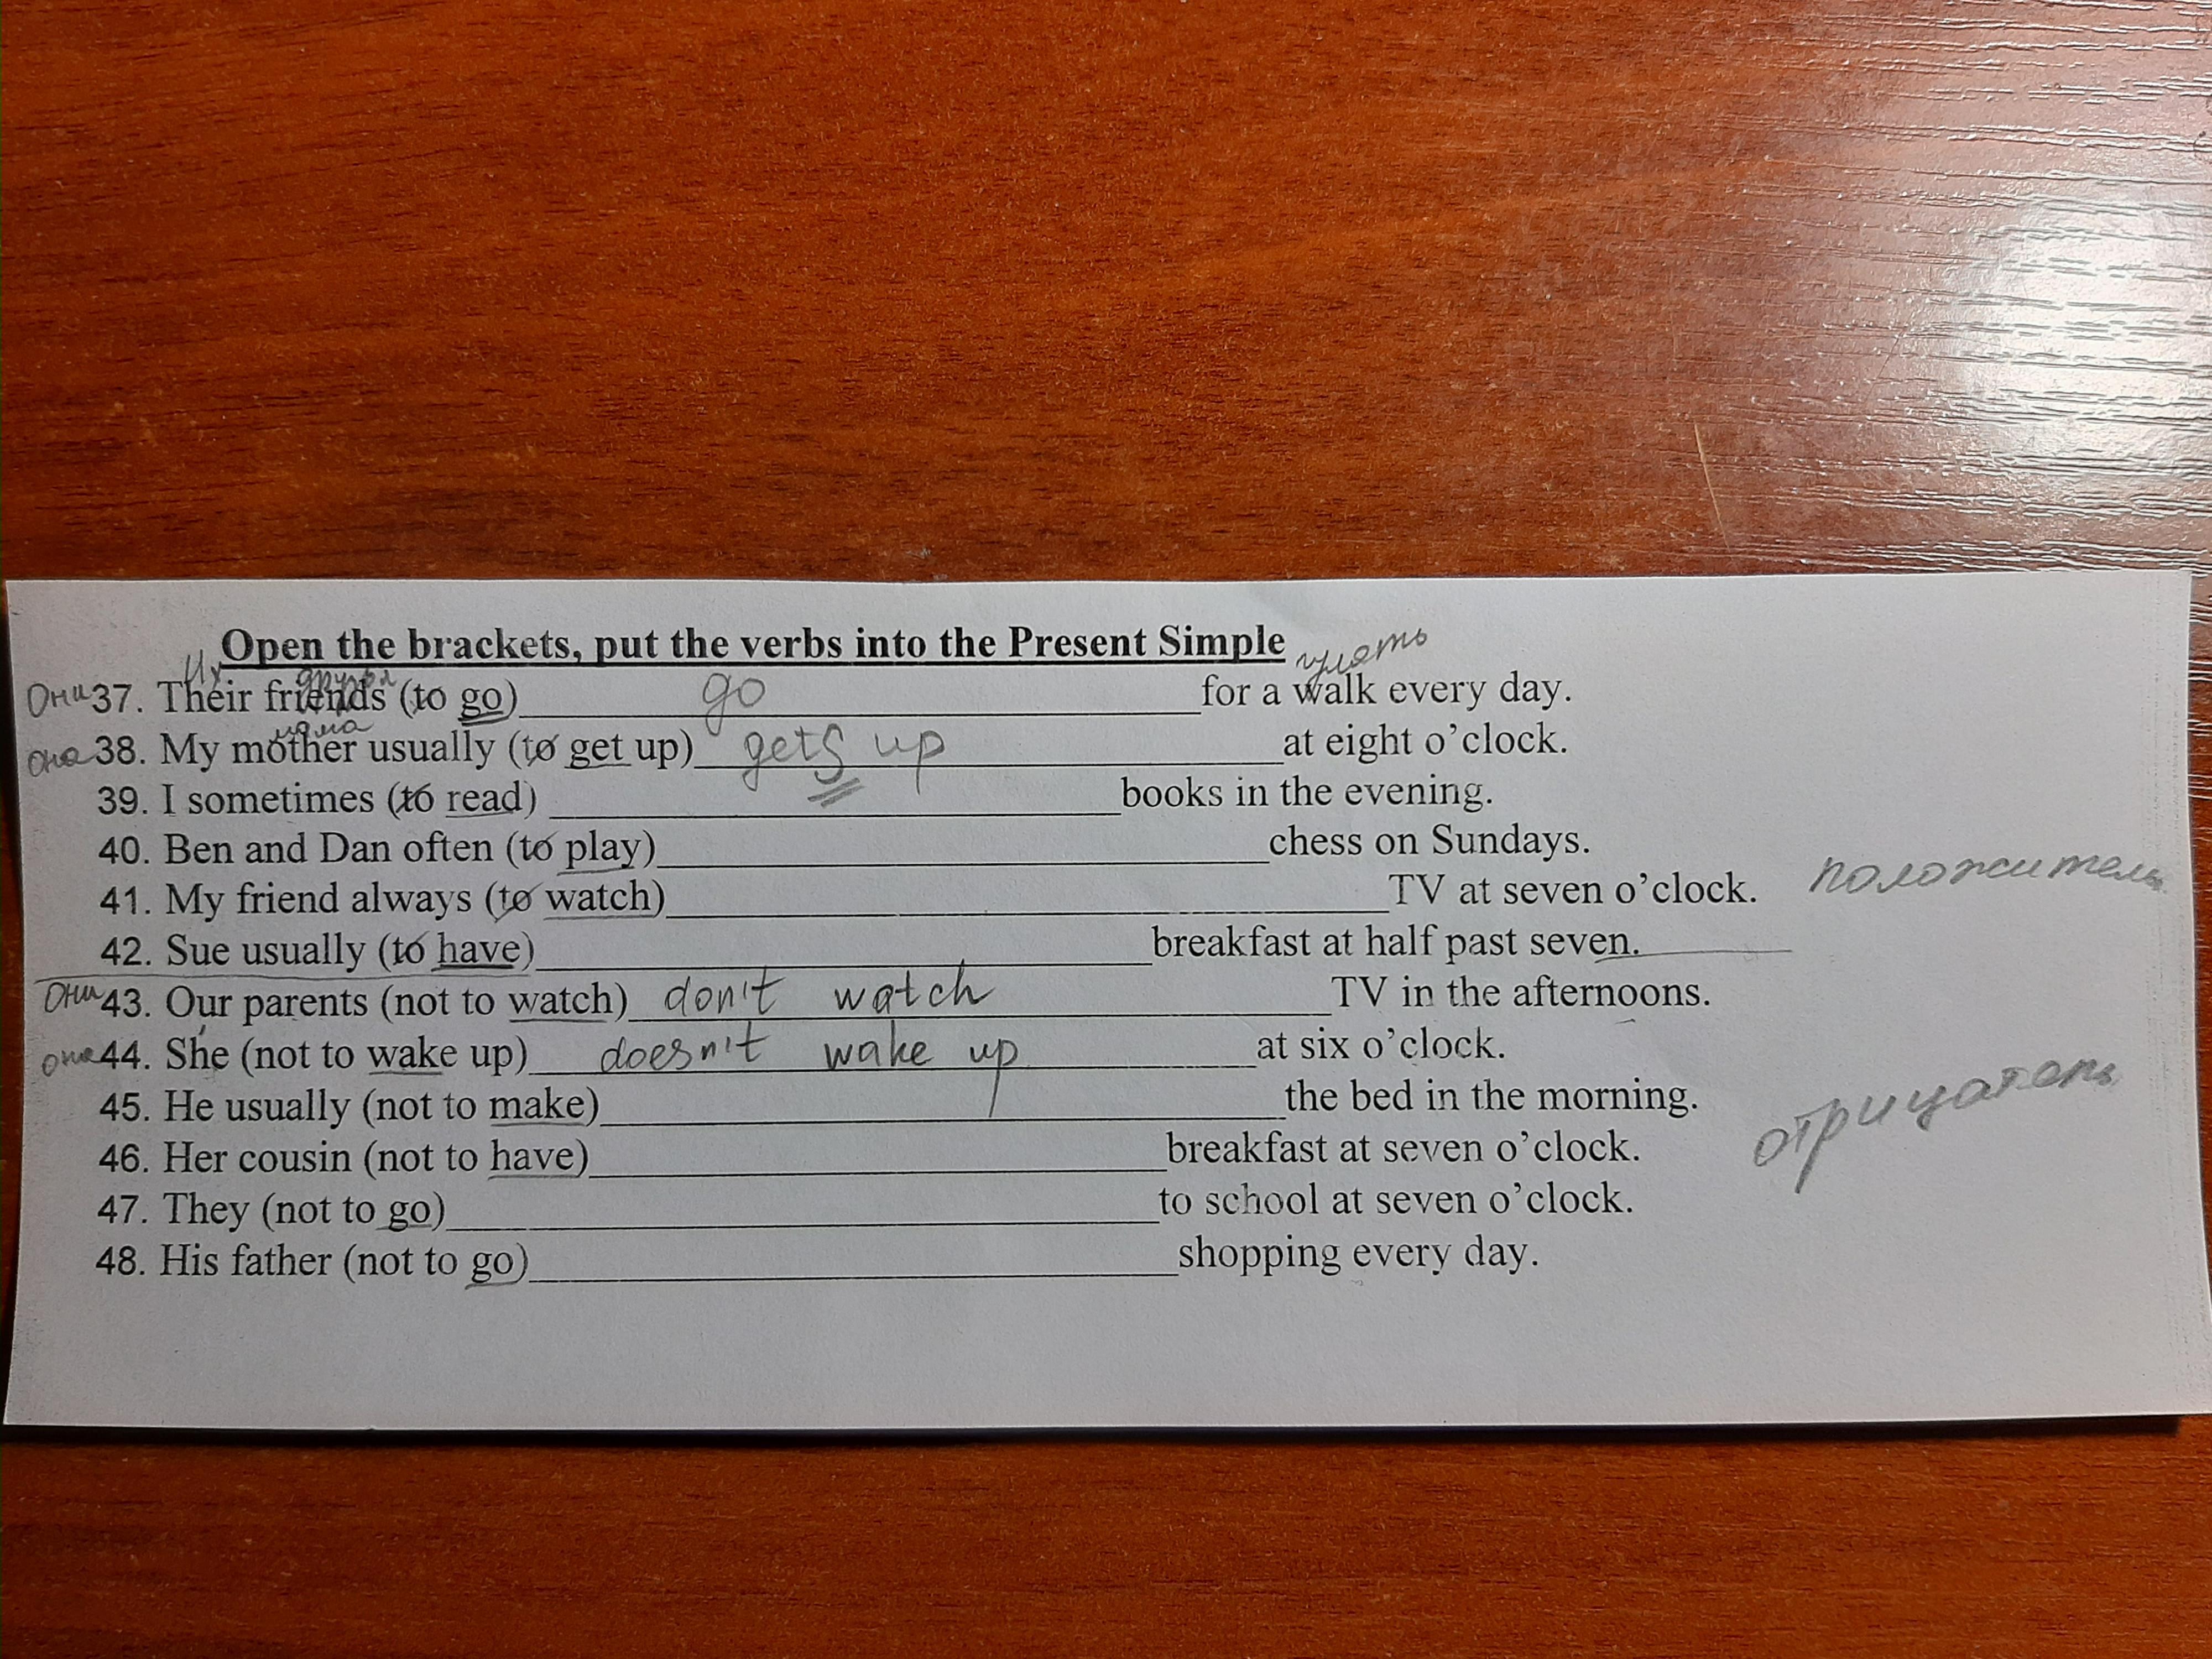 Open the brackets, put the verbs into the Present Simple
Их друзья гулять
Они 37. Their friends (to go) go for a walk every day.
мама
она 38. My mother usually (to get up) gets up at eight o’clock.
39. I sometimes (to read) ____ books in the evening.
40. Ben and Dan often (to play) ____ chess on Sundays.
41. My friend always (to watch) ____ TV at seven o’clock. положитель
42. Sue usually (to have) ____ breakfast at half past seven.
Они 43. Our parents (not to watch) don't watch TV in the afternoons.
она 44. She (not to wake up) doesn't wake up at six o’clock.
45. He usually (not to make) ____ the bed in the morning. отрицатель
46. Her cousin (not to have) ____ breakfast at seven o’clock.
47. They (not to go) ____ to school at seven o’clock.
48. His father (not to go) ____ shopping every day.